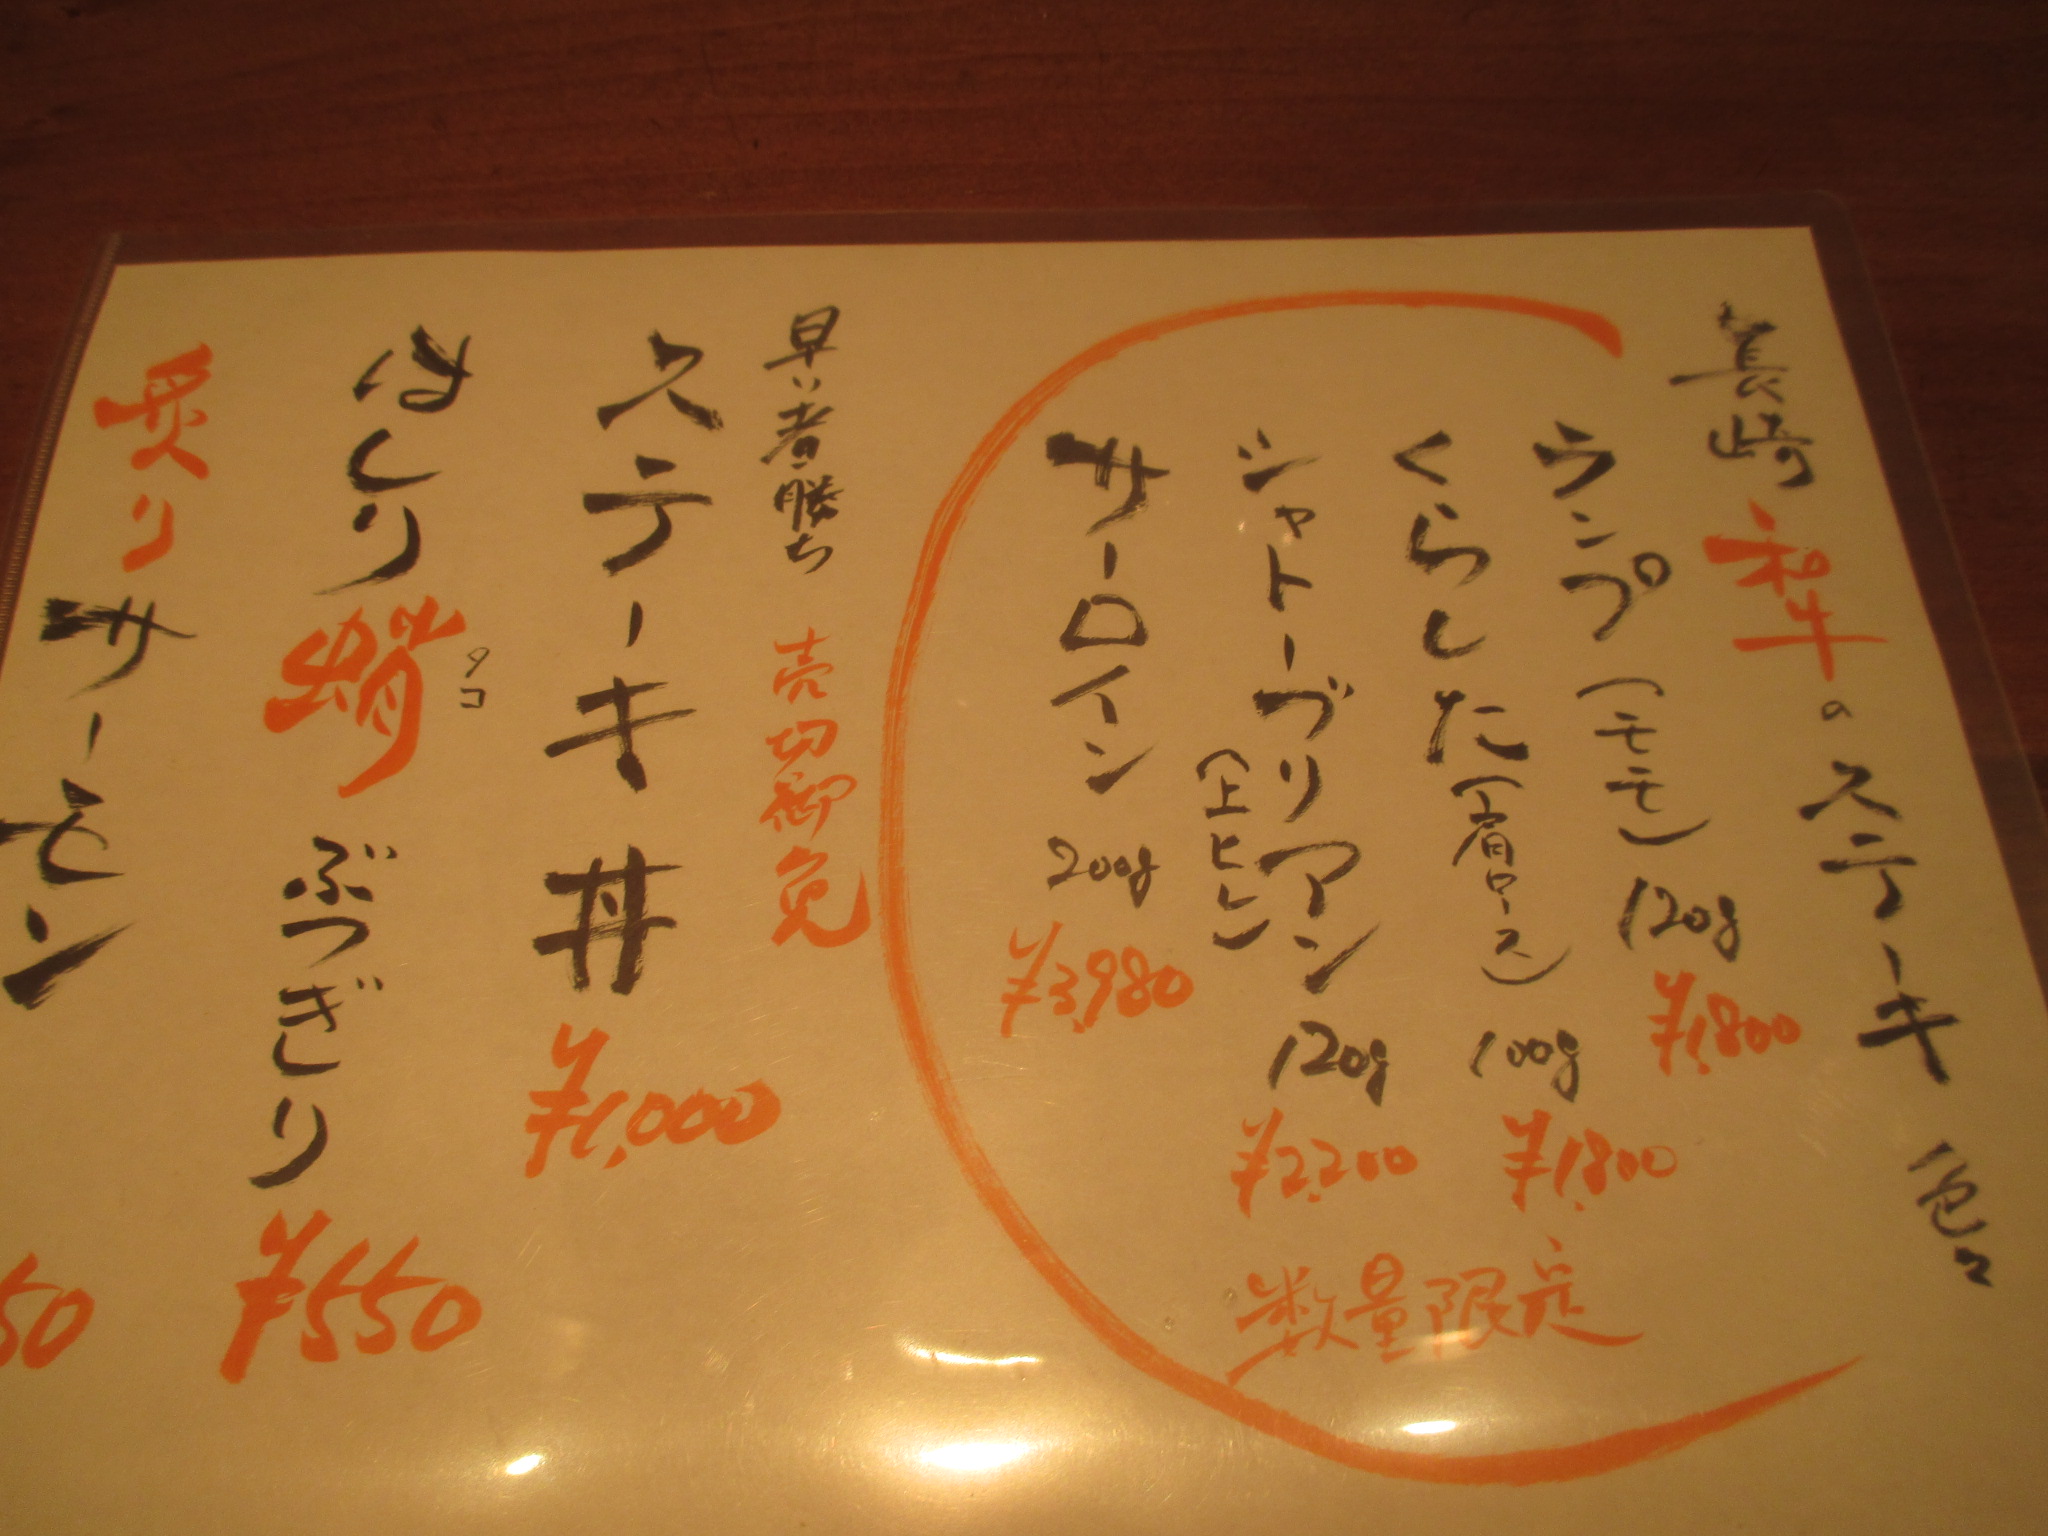 長崎和牛のステーキ 色々
ランプ(モモ) 120g ¥1,800
くらした(肩ロース) 100g ¥1,800
シャトーブリアン 120g ¥2,200
(上ヒレ)
サーロイン 200g ¥3,980
数量限定
早い者勝ち 売切御免
ステーキ丼 ¥1,000
タコ
はしり蛸 ぶつぎり ¥550
炙りサーモン
50